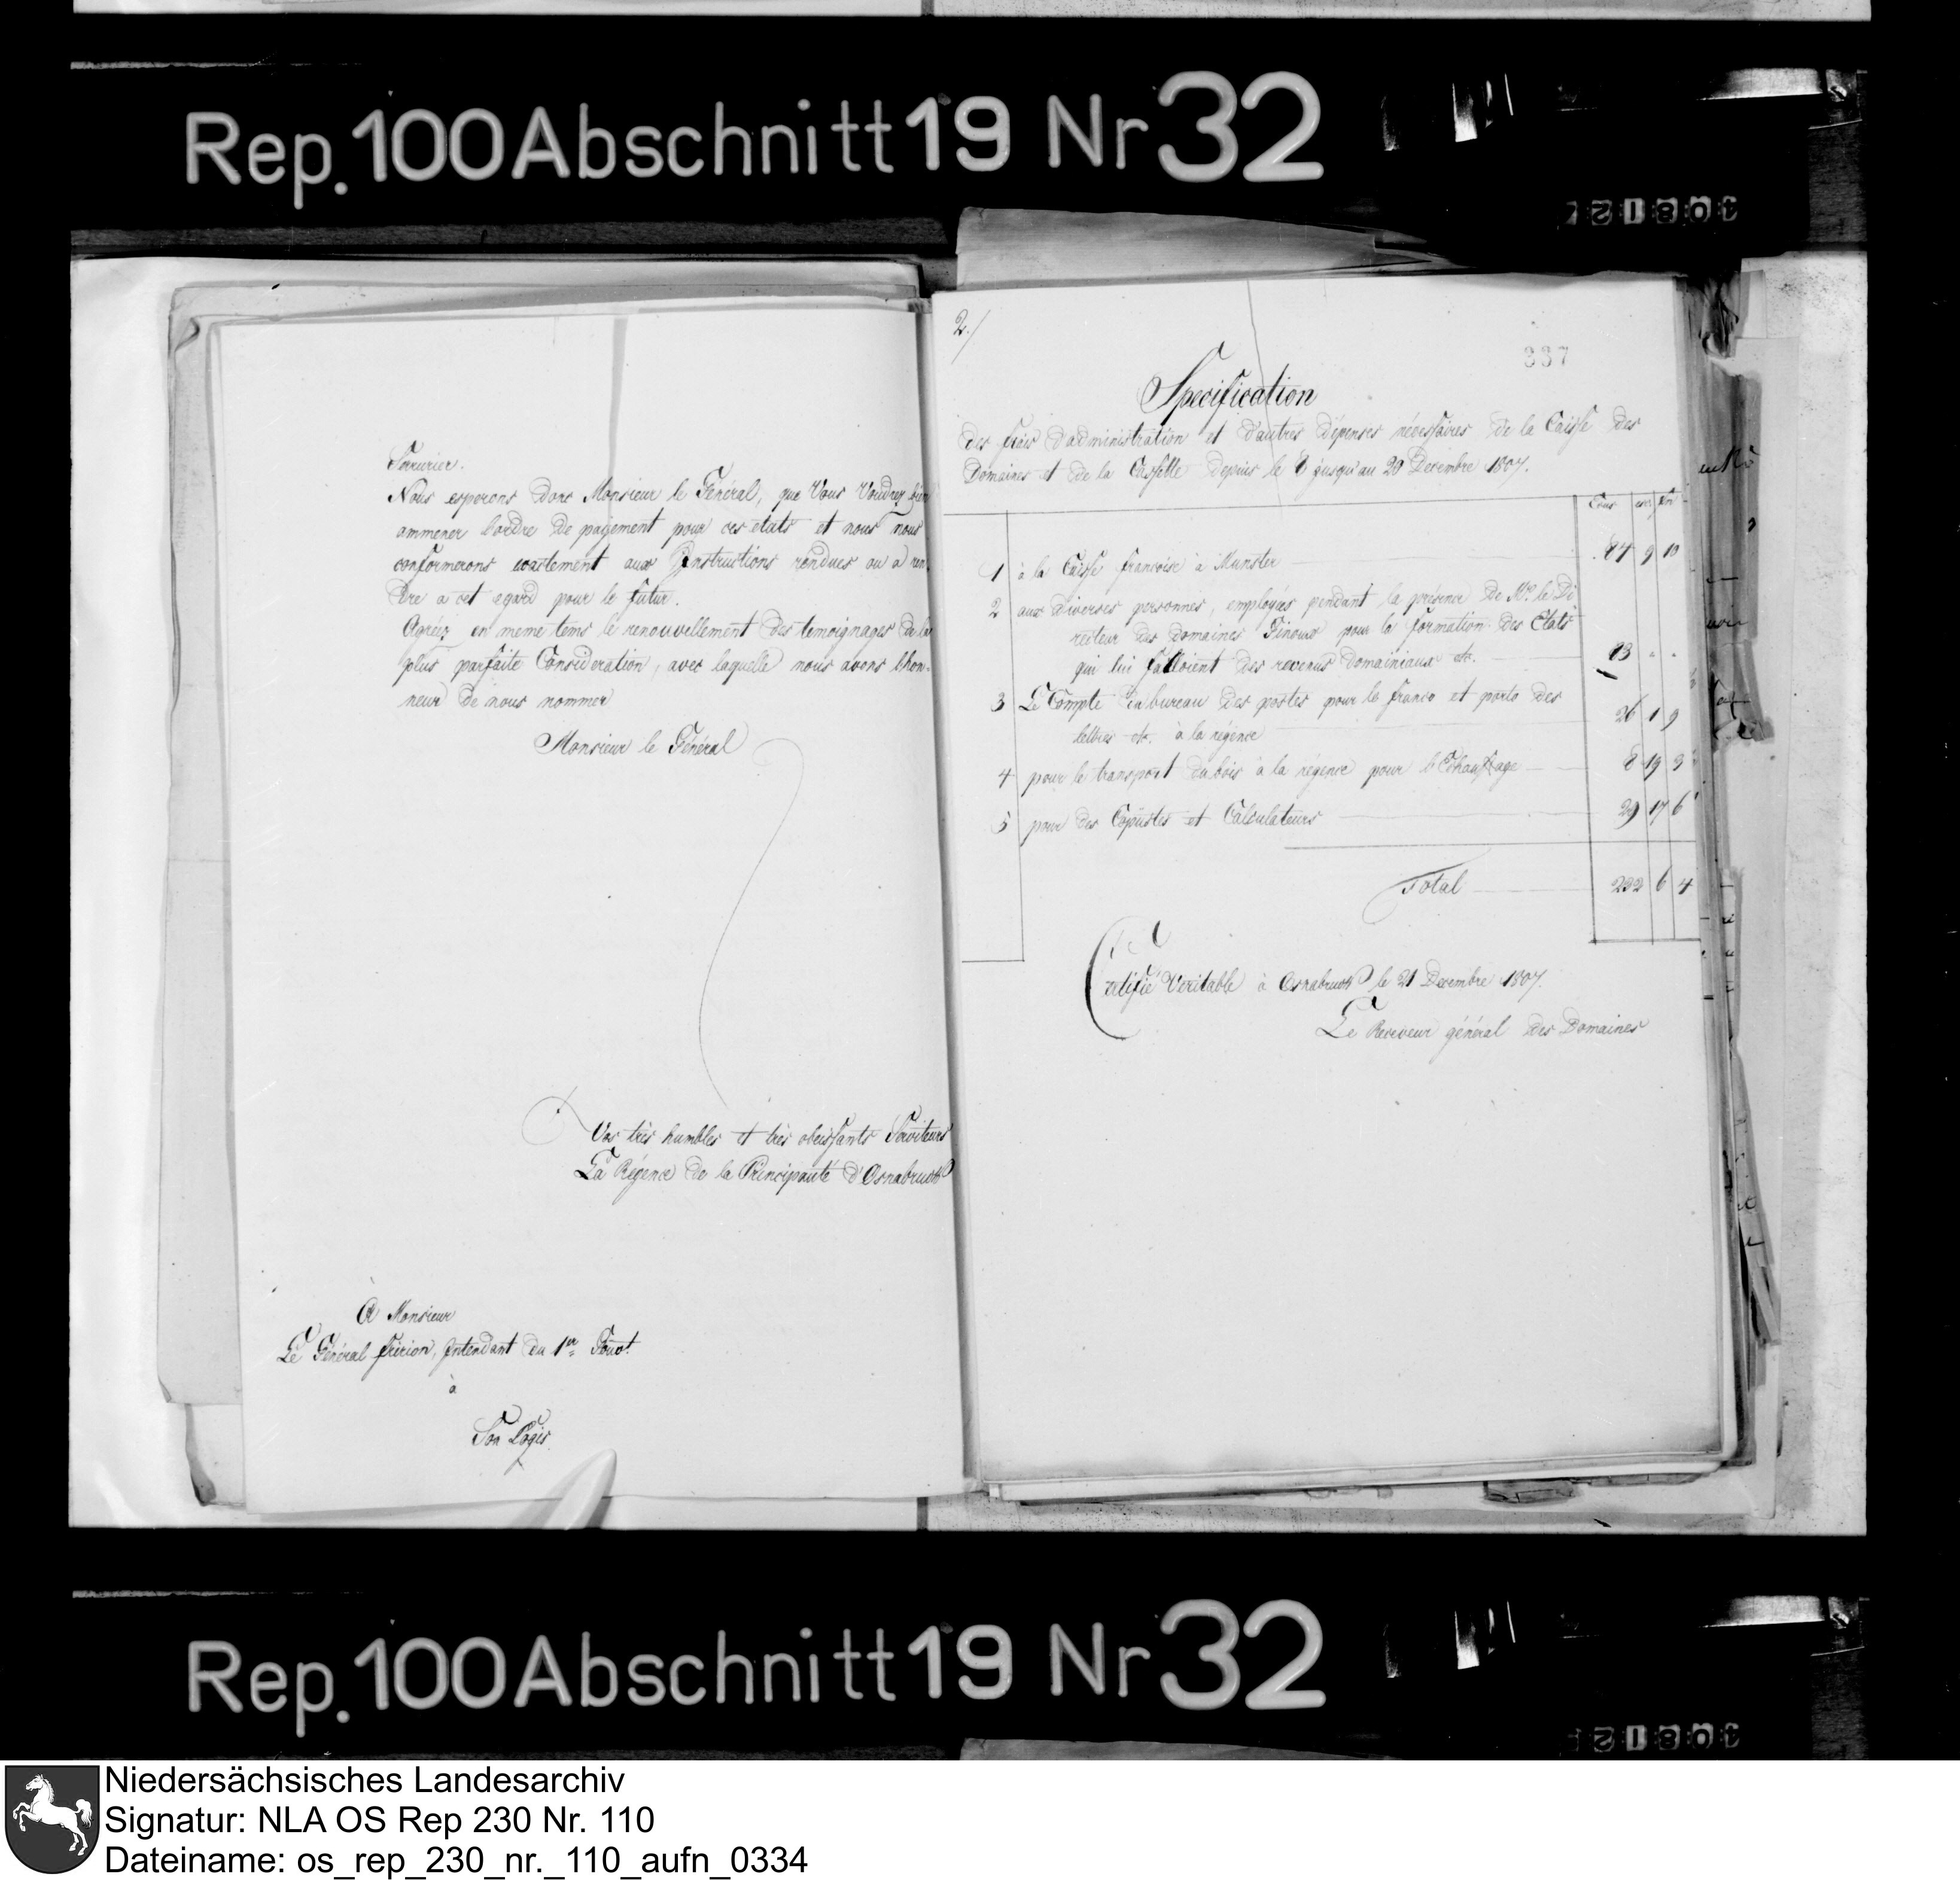 Rep. 100 Abschnitt 19 Nr 32
Serrurier.
Nous esperons donc Monsieur le Général, que Vous Voudrez bien
ammener l'ordre de payement pour ces états et nous nous
conformerons exactement aux Instructions rendues ou a ren-
dre a cet egard pour le futur.
Agréez en meme tems le renouvellement des temoignages de la
plus parfaite Consideration, avec laquelle nous avons l'hon-
neur de nous nommer
Monsieur le Général
Vos très humbles et très obeissants Serviteurs
La Régence de la Principauté d'Osnabruck
À Monsieur
Le Général Frerion, Intendant du 1er Gouvt.
à
Son Logis
2./
337
Specification
des frais d'administration et d'autres dépenses nécessaires de la Caisse des
Domaines et de la Cassette depuis le 8 jusqu'au 20 Decembre 1807.
1 à la Caisse francoise à Munster 84 9 10
2 aux diverses personnes, employées pendant la présence de Mr. le Di
recteur des domaines Ginoux pour la formation des Etats
qui lui falloient des revenus domainiaux etc. 83 " "
3 Le Compte du bureau des postes pour le franco et porto des
lettres etc. à la régence 26 1 9
4 pour le transport du bois à la régence pour l'Echauffage 8 19 3
5 pour des Copiistes et Calculateurs 29 17 6
Total 232 6 4
Certifié Veritable à Osnabruck le 21 Decembre 1807.
Le Receveur général des Domaines
Rep. 100 Abschnitt 19 Nr 32
Niedersächsisches Landesarchiv
Signatur: NLA OS Rep 230 Nr. 110
Dateiname: os_rep_230_nr._110_aufn_0334